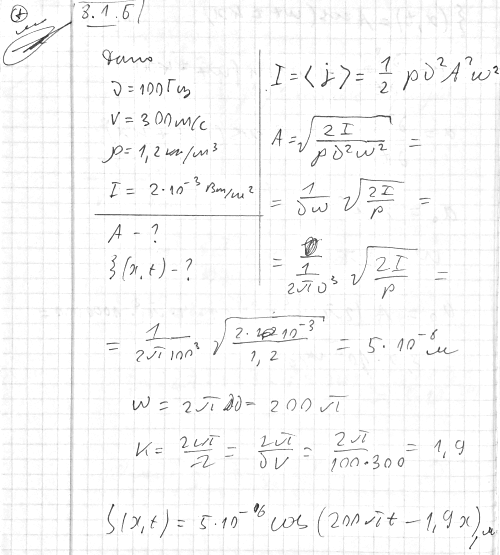 3.1.б
Дано
ν = 100 Гц
V = 300 м/с
ρ = 1,2 кг/м³
I = 2·10⁻³ Вт/м²
A - ?
ξ(x,t) - ?
I = <j> = 1/2 ρ∂²A²ω²
A = √(2I / ρ∂²ω²) =
= 1/∂ω √(2I/ρ) =
= 1/(2π∂³) √(2I/ρ) =
= 1/(2π100³) √(2·10⁻³ / 1,2) = 5·10⁻⁶ м
ω = 2π∂ = 200π
K = 2π/λ = 2π/∂V = 2π/(100·300) = 1,9
ξ(x,t) = 5·10⁻⁶ cos(200πt - 1,9x), м